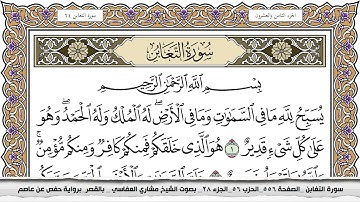 الجزء الثامن والعشرون
سورة التغابن ٦٤
سُورَةُ التَّغَابُنِ
بِسْمِ اللَّهِ الرَّحْمَٰنِ الرَّحِيمِ
يُسَبِّحُ لِلَّهِ مَا فِي السَّمَٰوَٰتِ وَمَا فِي الْأَرْضِ ۖ لَهُ الْمُلْكُ وَلَهُ الْحَمْدُ ۖ وَهُوَ
عَلَىٰ كُلِّ شَيْءٍ قَدِيرٌ ١ هُوَ الَّذِي خَلَقَكُمْ فَمِنكُمْ كَافِرٌ وَمِنكُم مُّؤْمِنٌ ۚ
سورة التغابن _ الصفحة ٥٥٦ _ الحزب ٥٦ _ الجزء ٢٨ _ بصوت الشيخ مشاري العفاسي _ بالقصر برواية حفص عن عاصم